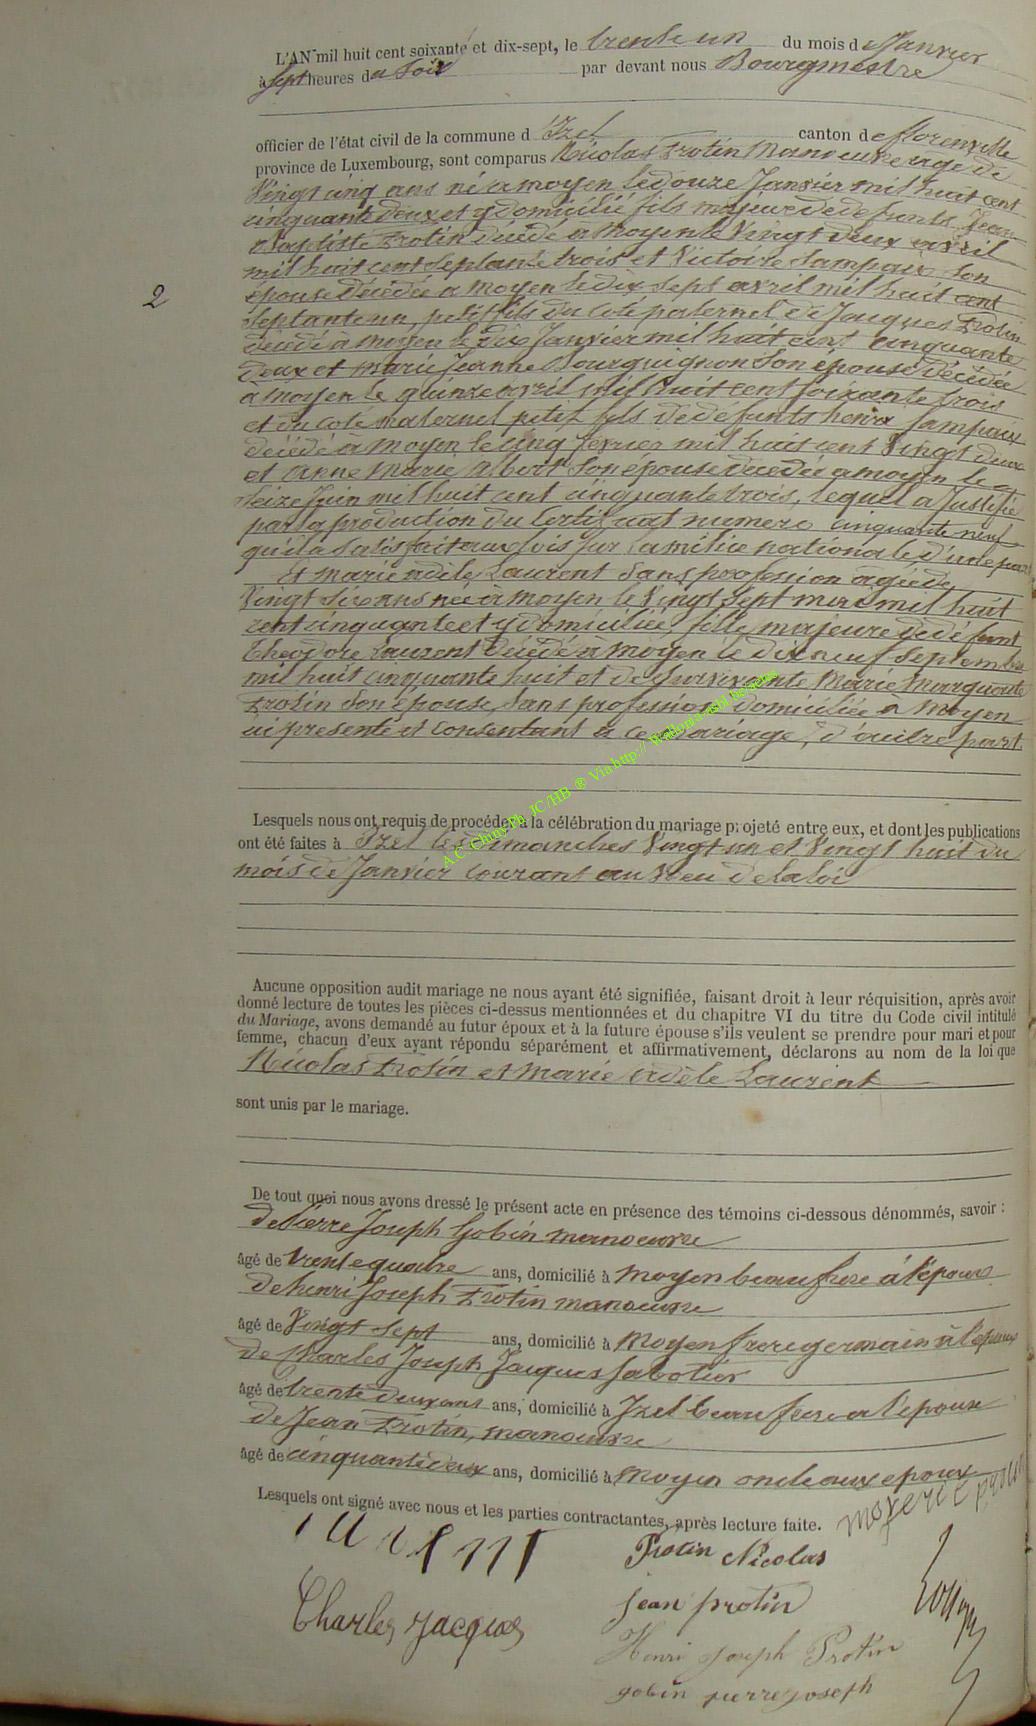 L'AN mil huit cent soixante et dix-sept, le trente un du mois de Janvier
à sept heures du soir par devant nous Bourgmestre
officier de l'état civil de la commune d'Izel canton de florenville
province de Luxembourg, sont comparus Nicolas Protin manoeuvre agé de
Vingt cinq ans né a moyen le douze Janvier mil huit cent
cinquante deux et y domicilié fils majeur de defunts Jean
Baptiste Protin décédé a Moyen le Vingt deux avril
mil huit cent septante trois et Victoire Lampaux son
épouse décédée a moyen le dix sept avril mil huit cent
septante un, petit fils du coté paternel de Jacques Protin
décédé à moyen le dix Janvier mil huit cent cinquante
deux et marie Jeanne Bourguignon son épouse décédée
a moyen le quinze avril mil huit cent soixante trois
et du coté maternel petit fils de defunts henri Lampaux
décédé à moyen le cinq fevrier mil huit cent Vingt deux
et Anne Marie Albert son épouse decedée a moyen le
seize Juin mil huit cent cinquante trois, lequel a justifié
par la production du Certificat numero cinquante neuf
qu'il a satisfait aux lois sur la milice nationale, d'une part
Et marie adèle Laurent sans profession agée de
Vingt six ans née à moyen le Vingt sept mars mil huit
cent cinquante et y domiciliée, fille majeure de défunt
Theodore Laurent décédé à Moyen le dix neuf septembre
mil huit cinquante huit et de survivante Marie Marguerite
Protin son épouse, sans profession domiciliée a Moyen
ici presente et consentant à ce mariage, d'autre part.
Lesquels nous ont requis de procéder à la célébration du mariage projeté entre eux, et dont les publications
ont été faites à Izel les dimanches Vingt un et Vingt huit du
mois de Janvier courant au Voeu de la loi
Aucune opposition audit mariage ne nous ayant été signifiée, faisant droit à leur réquisition, après avoir
donné lecture de toutes les pièces ci-dessus mentionnées et du chapitre VI du titre du Code civil intitulé
du Mariage, avons demandé au futur époux et à la future épouse s'ils veulent se prendre pour mari et pour
femme, chacun d'eux ayant répondu séparément et affirmativement, déclarons au nom de la loi que
Nicolas Protin et Marie adèle Laurent
sont unis par le mariage.
De tout quoi nous avons dressé le présent acte en présence des témoins ci-dessous dénommés, savoir :
de Pierre Joseph Gobin manoeuvre
âgé de trente quatre ans, domicilié à Moyen beau frere à l'époux
de henri Joseph Protin manoeuvre
âgé de Vingt sept ans, domicilié à Moyen frere germain à l'époux
de Charles Joseph Jacques sabotier
âgé de trente deux ans ans, domicilié à Izel beau frere a l'épouse
de Jean Protin, manoeuvre
âgé de cinquante deux ans, domicilié à Moyen oncle aux epoux
Lesquels ont signé avec nous et les parties contractantes, après lecture faite.
Protin Nicolas
jean protin
Charles Jacques
Henri Joseph Protin
gobin pierre joseph
2
A.C. Chiny Ph. JC/HB ® Via http:// Wallonia-asbl.be/actes